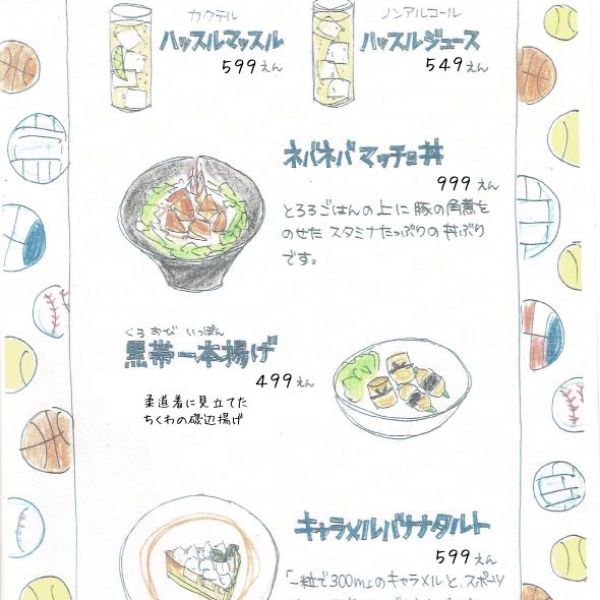 カクテル
ハッスルマッスル
599えん
ノンアルコール
ハッスルジュース
549えん
ネバネバマッチョ丼
999えん
とろろごはんの上に豚の角煮を
のせた スタミナたっぷりの丼ぶり
です。
くろ おび いっぽん
黒帯一本揚げ
499えん
柔道着に見立てた
ちくわの磯辺揚げ
キャラメルバナナタルト
599えん
「一粒で300m」のキャラメルと、スポーツ